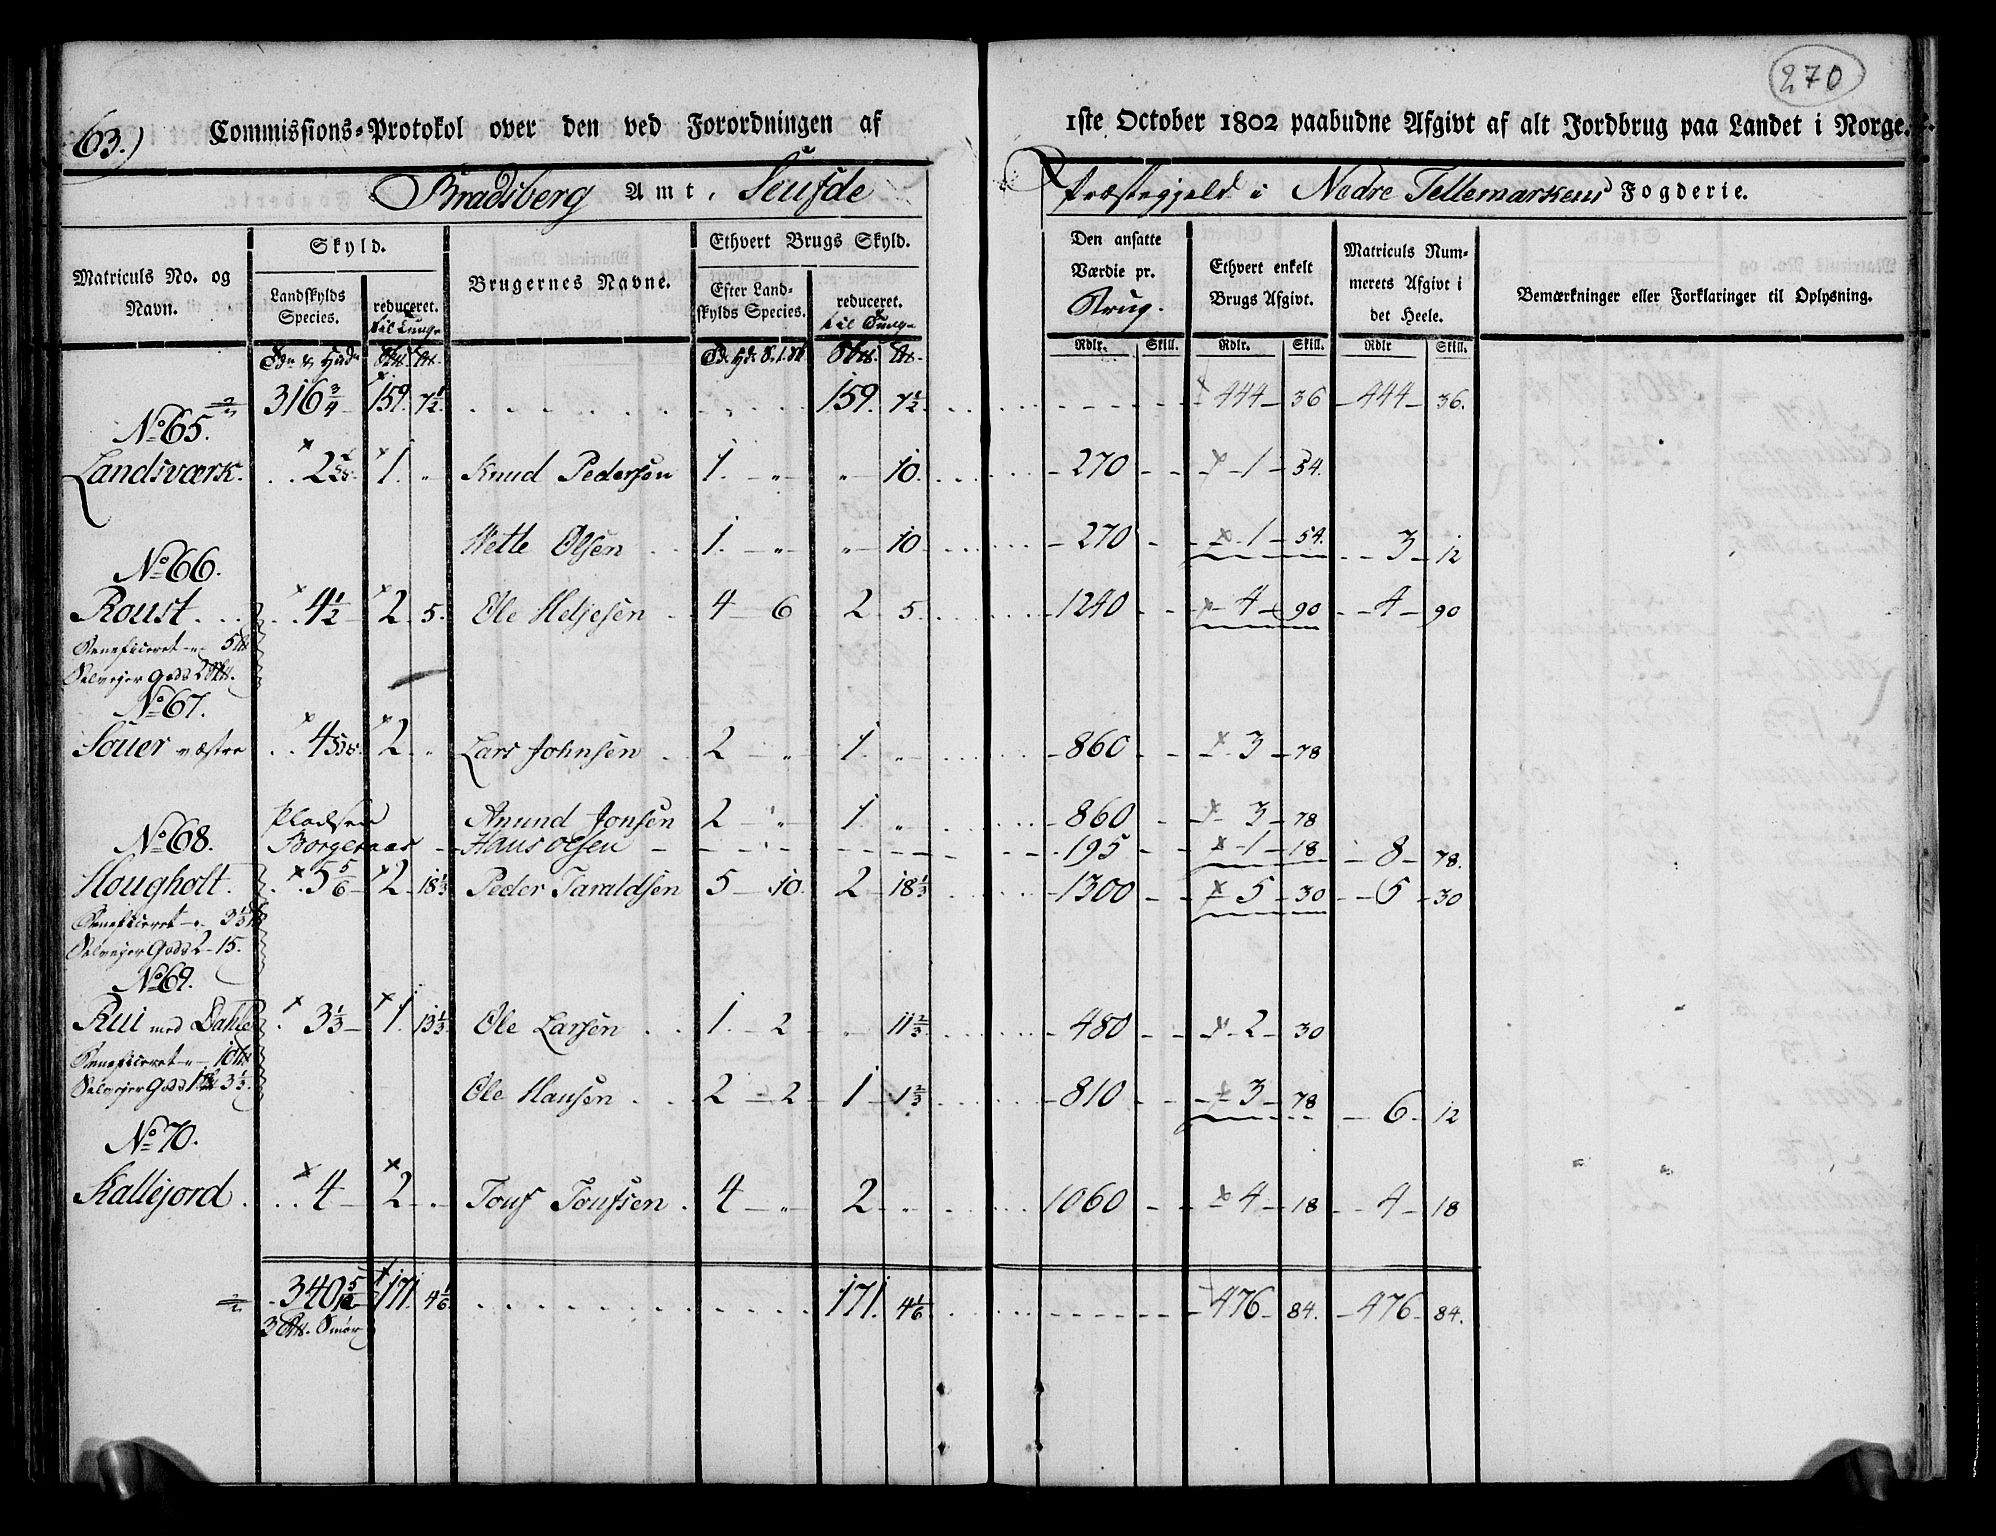 270
63.) Commissions-Protokol over den ved Forordningen af 1ste October 1802 paabudne Afgivt af alt Jordbrug paa Landet i Norge.
Bradsberg Amt, Seufde Præstegjeld i Nedre Tellemarkens Fogderie.
Matriculs No. og Navn. Skyld. Landskylds Species. reduceret. til Tunge Brugernes Navne. Ethvert Brugs Skyld. Efter Landskylds Species. reduceret. til Tunge Den ansatte Værdie pr. Brug. Ethvert enkelt Brugs Afgivt. Matriculs Nummerets Afgivt i det Heele. Bemærkninger eller Forklaringer til Oplysning.
Rdlr. Skill. Rdlr. Skill. Rdlr Skill.
316 3/4 159. 7 1/2 159. 7 1/2 444 36 444 36.
No 65.
Landsværk. 2 1. " Knud Pedersen 1. " " 10. 270 1 54.
Wette Olsen 1. " " 10 270 1 54. 3 12
No 66.
Roust 4 1/2 2 5. Ole Heljesen 4 6 2 5. 1240 4 90 4 90
Beneficeret " 5
Selvejer Gods 2
No 67.
Souer væstre 4 2 " Lars Johnsen 2 " 1. " 860 3 78
Anund Jonsen 2 " 1. " 860 3 78
Pladsen Borgeraas Hans Olsen 195 1 18 8 78.
No 68.
Hougholt. 5 5/6 2 18 1/3 Peder Taraldsen 5 10. 2 18 1/3 1300 5 30 5 30
Beneficeret " 3 1/3
Selvejer Gods 2 15.
No 69.
Rui med Dahle 3 1/3 1. 13 1/3. Ole Larsen 1. 2 " 11 2/3 480 2 30
Beneficeret " 10
Selvejer Gods 1 3 1/3.
Ole Hansen 2 2 1 1 2/3 810 3 78 6 12
No 70.
Kallejord. 4 2 " Touf Toufsen 4 " 2 " 1060 4 18 4 18
340 171. 4 1/6. 171. 4 1/6 476 84. 476 84.
3 Smör